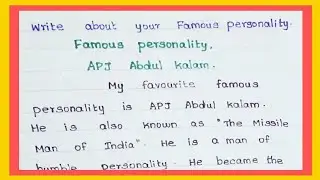 Write about your Famous personality.
Famous personality.
APJ Abdul kalam.
My favourite famous
personality is APJ Abdul kalam.
He is also known as "The Missile
Man of India". He is a man of
humble personality. He became the